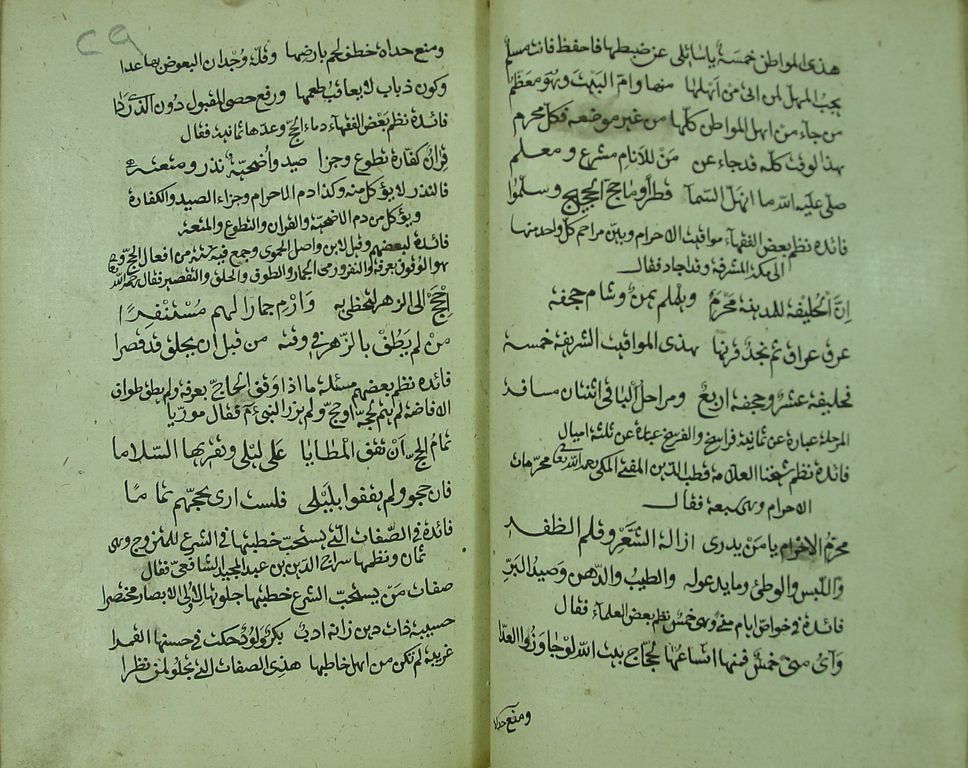 هذى المواطن خمسة ياسائلى عن ضبطها فاحفظ فانت مسلم
يجب المهل لمن اتى من اهلها منها وام البيت وهو معظم
من جاء من اهل المواطن كلها من غير موضعه فكل محرم
بهذا الوقت كله قد جاء عن من للانام مشرع ومعلم
صلى عليه الله ما انهل السما قطرا وما حج الحجيج وسلموا
فائدة نظم بعض الفقهاء مواقيت الاحرام وبين مراحم كل واحد منها
الى مكة المشرفة وقد اجاد فقال
ان الحليفة للمدينة محرم ويلملم يمن وشام جحفة
عرق عراق ثم نجد قرنها هذى المواقيت الشريفة خمسة
لحليفة عشر وجحفة اربع ومراحل الباقى اثنتان مسافة
المرحلة عبارة عن ثمانية فراسخ والفرسخ عبارة عن ثلثة اميال
فائدة نظم شيخنا العلامة قطب الدين المفتى المكى رحمه الله تعالى محرمات
الاحرام وهى سبعة فقال
محرم الاحرام يا من يدرى ازالة الشعر وقلم الظفر
واللبس والوطئ وما يدعو له والطيب والدهن وصيد البر
فائدة فى خواص ايام منى وهى خمس نظم بعض العلماء فقال
وآى منى خمس فمنها اتساعها لحجاج بيت الله لو جاوزوا العدا
ومنع حداة
٢٩
ومنع حداة خطف لحم بارضها وقلة وجدان البعوض بها عدا
وكون ذباب لا يعاقب طعمها ورفع حصى المقبول دون الذى ردا
فائدة نظم بعض الفقهاء دماء الحج وعدها ثمانية فقال
قران كفارة تطوع وجزا صيد واضحية نذر ومتعته
فالنذر لا يؤكل منه وكذا دم الاحرام وجزاء الصيد والكفارة
ويؤكل من دم الاضحية والقران والتطوع والمتعة
فائدة لبعضهم وقيل لابن واصل الحموى وجمع فيه جملة من افعال الحج وهى
هو الوقوف بعرفة والنفر ورمى الجمار والطوف والحلق والتقصير فقال رحمه الله
احجج الى الزهر لتحظى به وارم جمار الهم مستنفرا
من لم يطف بالزهر فى وقته من قبل ان يحلق قد قصرا
فائدة نظم بعضهم مسئلة ما اذا وقف الحاج بعرفة ولم يطق طواف
الافاضة لم يتم حجه او حج ولم يزر النبى عم فقال موريا
تمام الحج ان تقف المطايا على ليلى وتقربها السلاما
فان حجوا ولم يقفوا بليلى فلست ارى حجهم تماما
فائدة فى الصفات التى يستحب خطبتها فى الشرع للمتزوج وهى
ثمان ونظمها سراج الدين بن عبد المجيد الشافعى فقال
صفات من يستحب الشرع خطبتها جلوتها لاولى الابصار مختصرا
حسيبة ذات دين زانه ادب بكر ولود حكت فى حسنها القمرا
غريبة لم تكن من اهل خاطبها هذى الصفات التى تجلو لمن نظرا